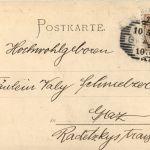 POSTKARTE.
Hochwohlgeboren
Fräulein Valy Schmelzer
Graz
Radetzkystrasse